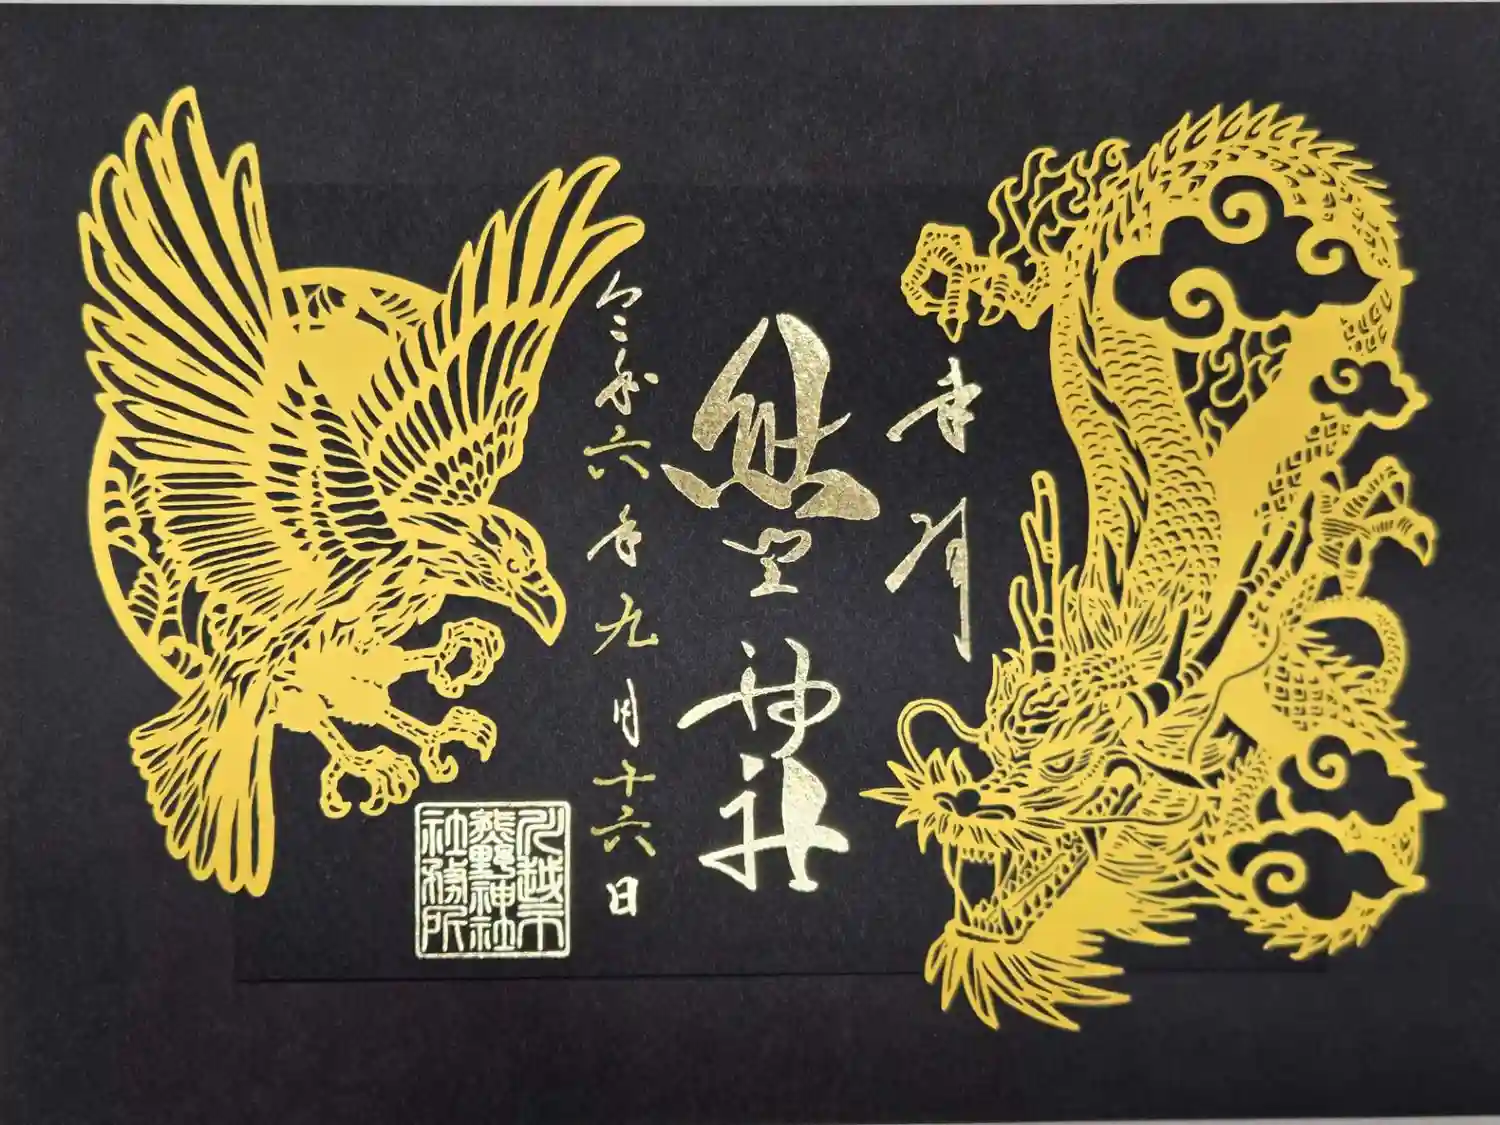 奉拝
熊野神社
令和六年九月十六日
川越市
熊野神社
社務所